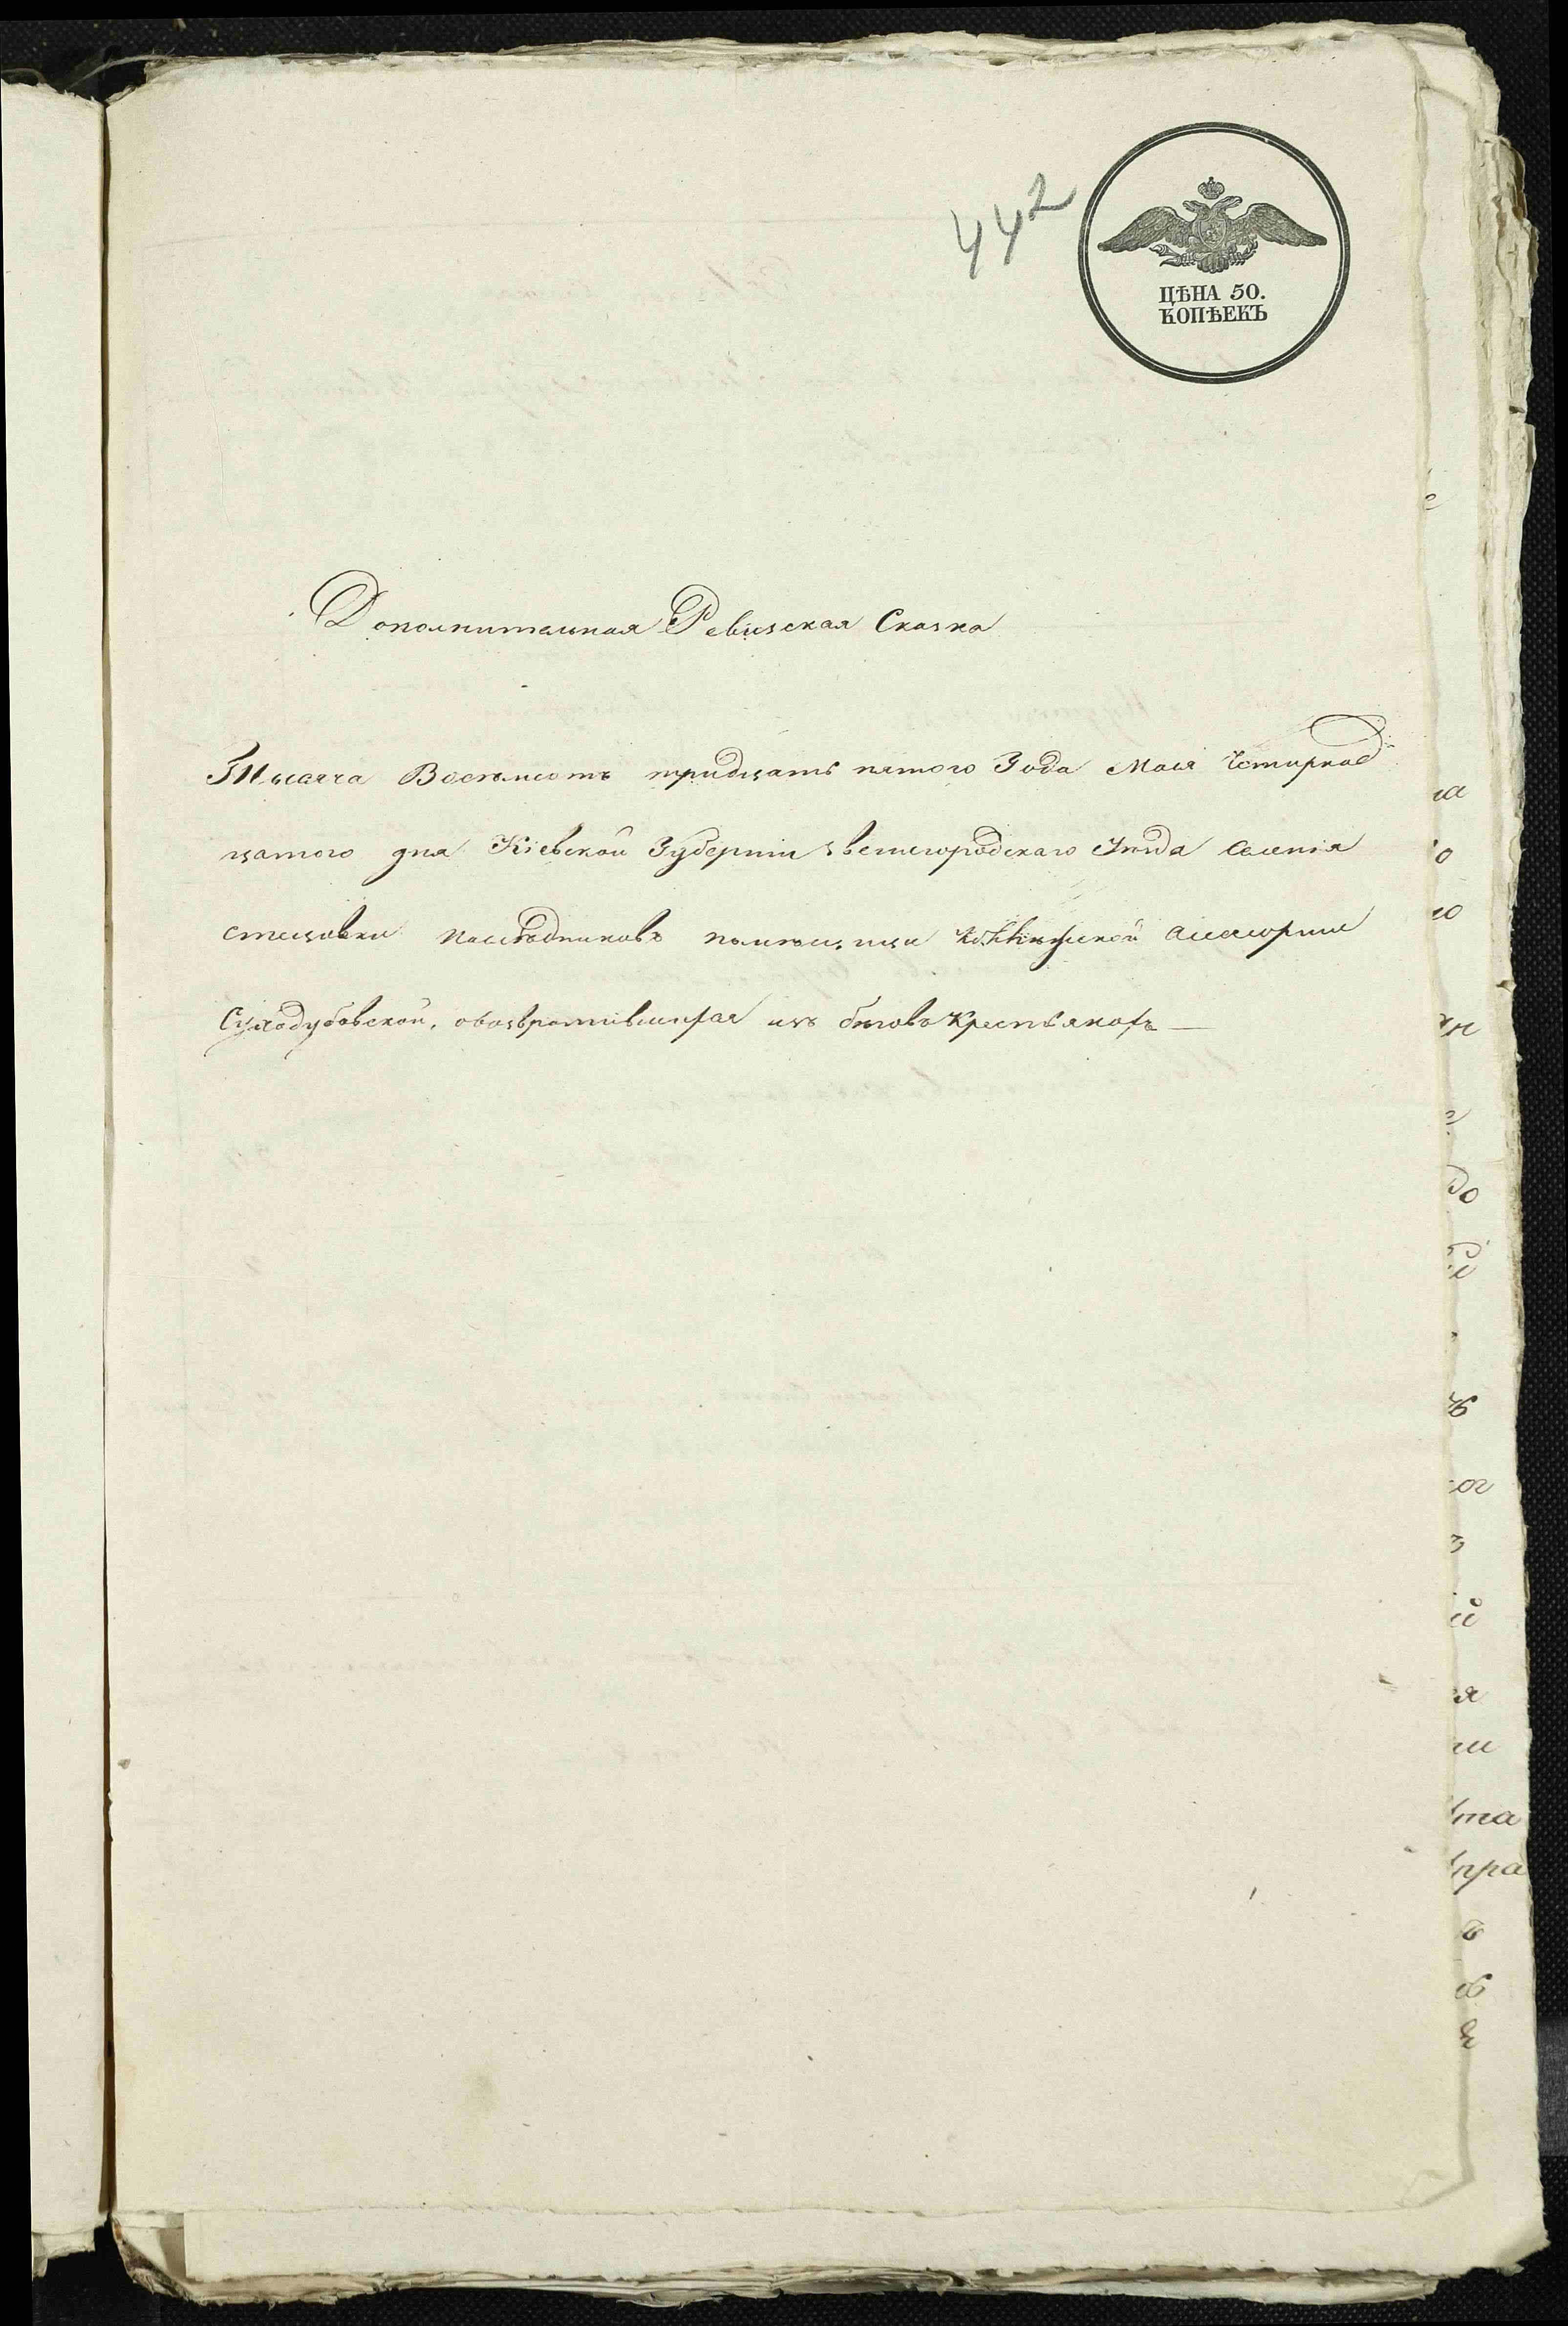 442
ЦѢНА 50.
КОПѢЕКЪ
Дополнительная Ревизская Сказка
Тысяча Восемьсотъ тридцать пятого Года Мая Четирнад
цатого дня Кіевской Губерніи Звенигородскаго Уѣзда Селенія
стецовки наслѣдниковъ помѣщици асесорши
Суходубовской, овозвратившихся изъ бѣговъ Крестьянахъ